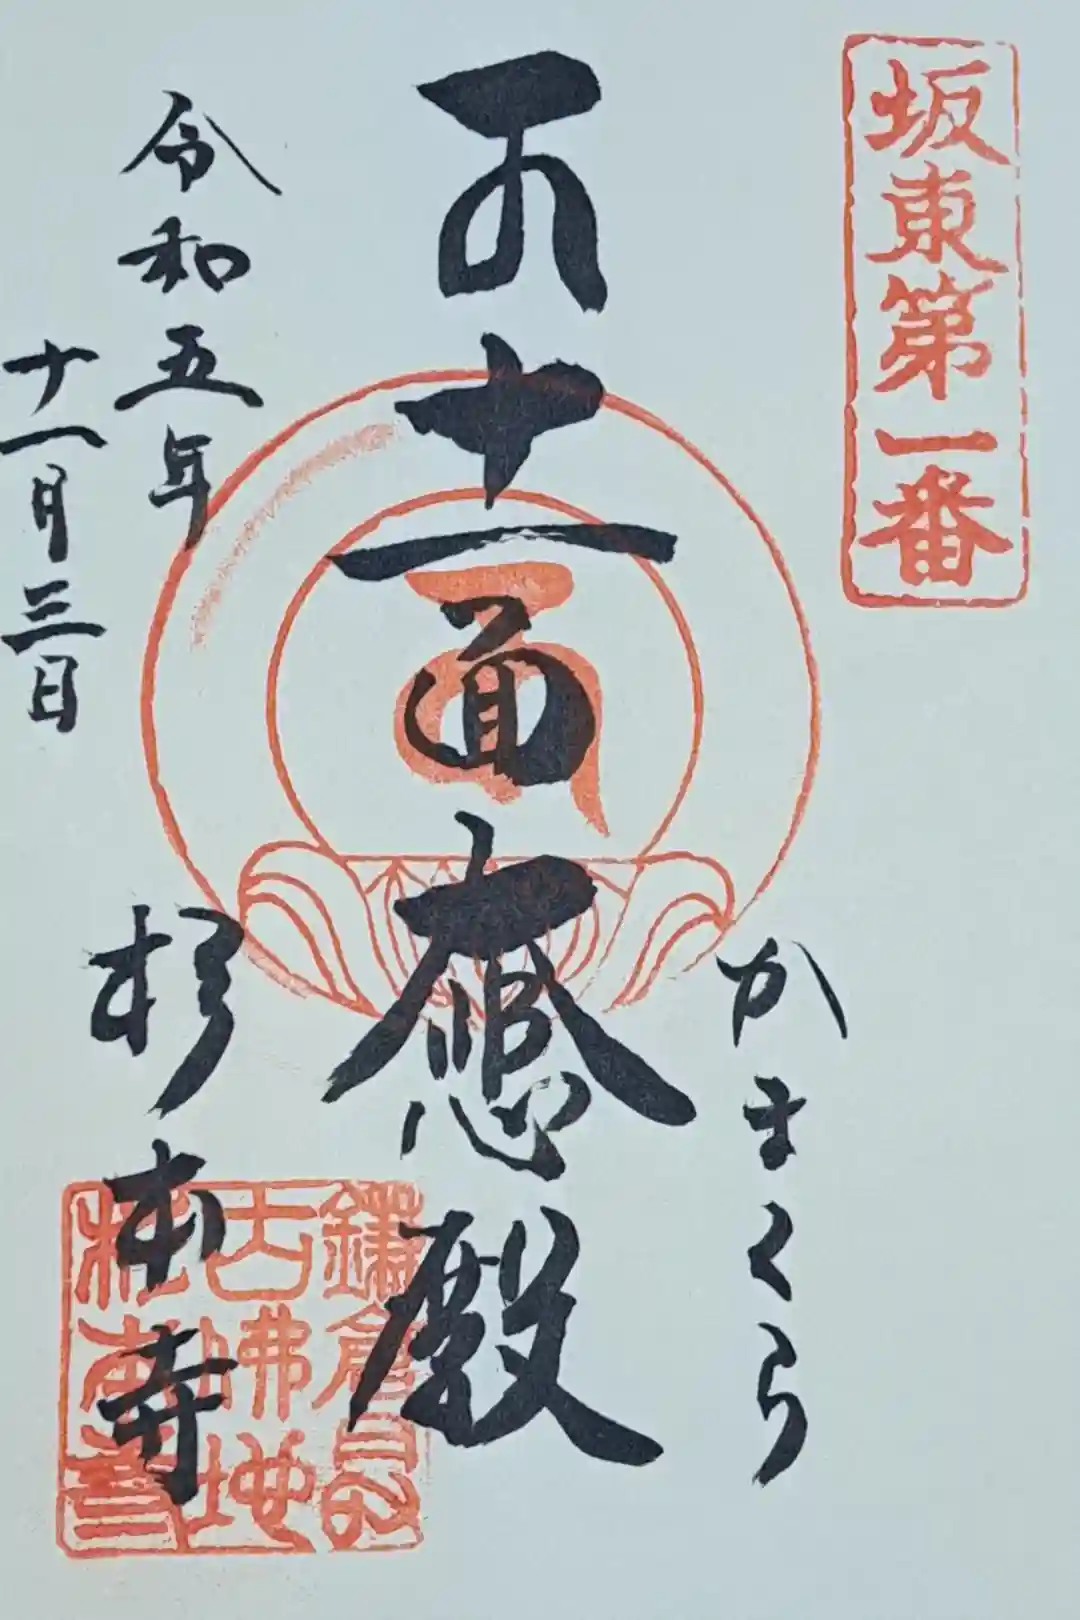 坂東第一番
かまくら
十一面大悲殿
令和五年
十一月三日
杉本寺
鎌倉最
古佛地
杉本寺